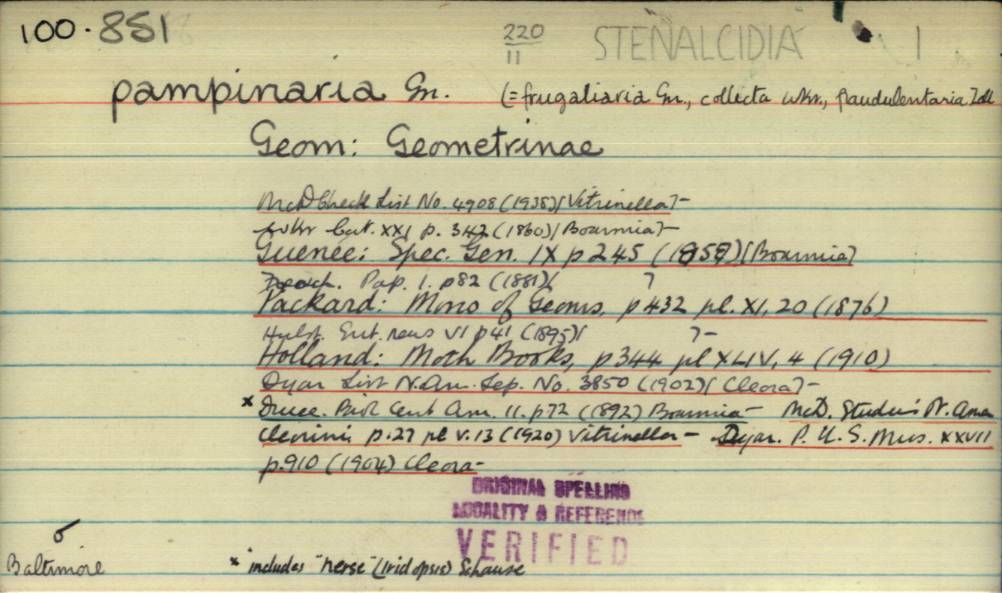 100.851
220
11
STENALCIDIA 1
pampinaria Gn. (=frugaliaria Gn., collecta Wkr., fraudulentaria Zell
Geom: Geometrinae
McD Check List No. 4908 (1938) [Vitrinella] -
Wkr Cat. XXI p. 342 (1860) [Boarmia] -
Guenée: Spec. Gen. IX p 245 (1858) [Boarmia]
Pap. 1. p82 (1881) [ ]
Packard: Mono of Geoms, p 432 pl. XI, 20 (1876)
Hulst. Ent. news VI p 41 (1895) [ ] -
Holland: Moth Books, p 344 pl XLIV, 4 (1910)
Dyar List N. Am. Lep. No. 3850 (1902) [Cleora] -
* Druce. Biol Cent Am. II. p72 (1892) Boarmia - McD. Studies N. Amer
Cleorini p. 27 pl V. 13 (1920) Vitrinella - Dyar. P. U. S. Mus. XXVII
p. 910 (1904) Cleora -
ORIGINAL SPELLING
LOCALITY & REFERENCE
VERIFIED
♂
Baltimore
* includes "herse" (Iridopsis) Schause